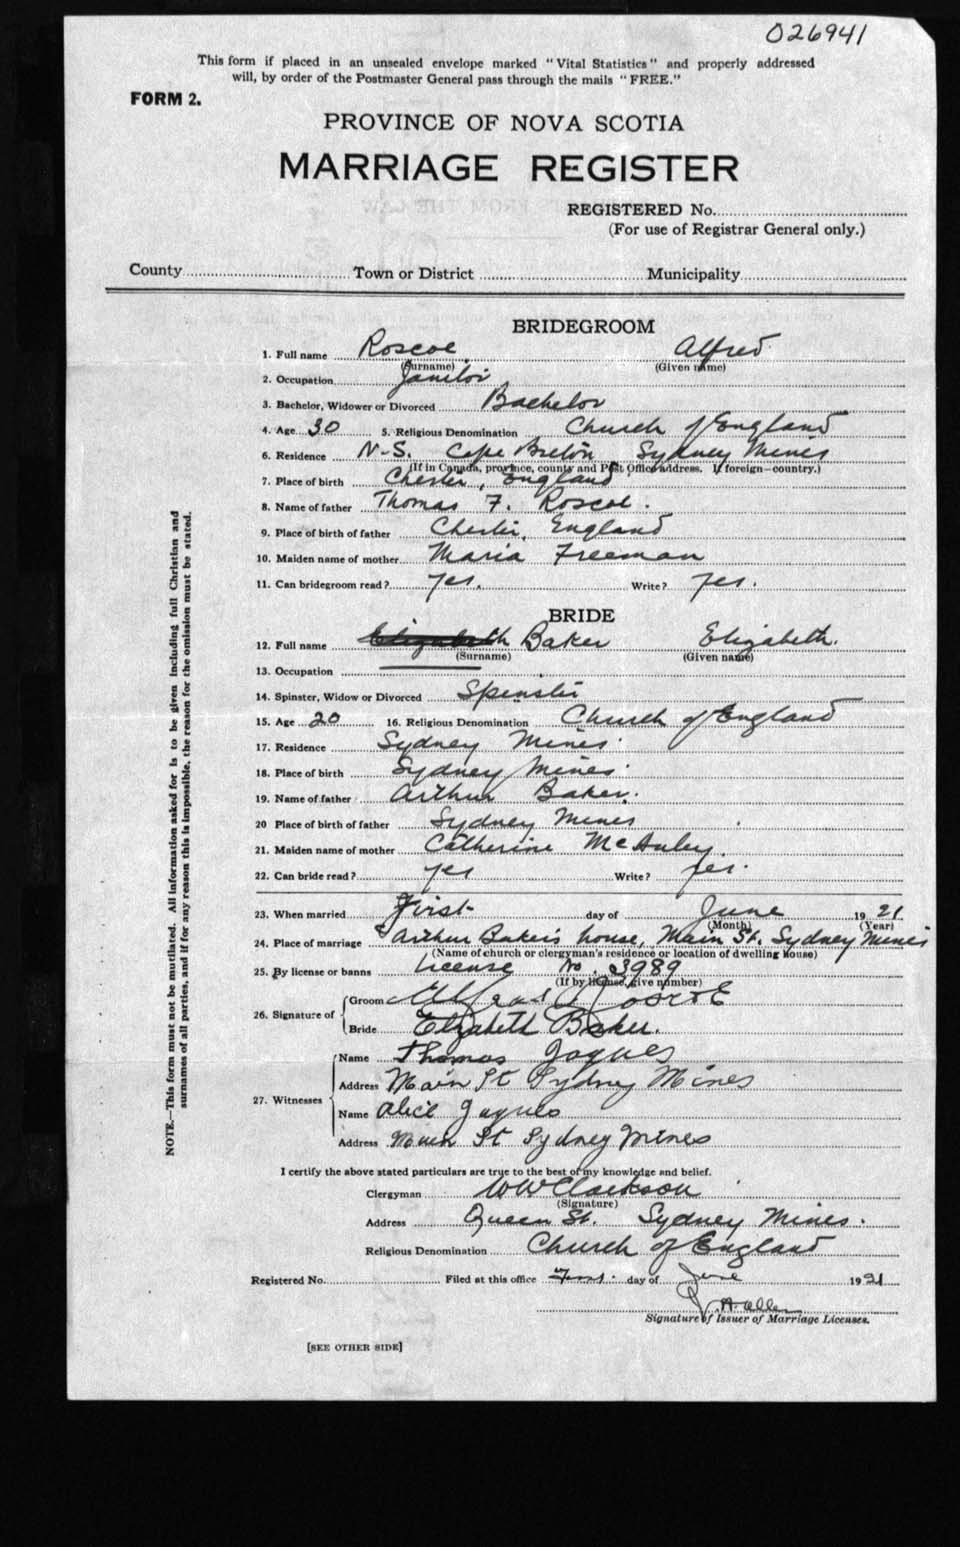 026941
This form if placed in an unsealed envelope marked "Vital Statistics" and properly addressed
will, by order of the Postmaster General pass through the mails "FREE."
FORM 2.
PROVINCE OF NOVA SCOTIA
MARRIAGE REGISTER
REGISTERED No.
(For use of Registrar General only.)
County Town or District Municipality
BRIDEGROOM
1. Full name Roscoe Alfred
(Surname) (Given name)
2. Occupation Janitor
3. Bachelor, Widower or Divorced Bachelor
4. Age 30 5. Religious Denomination Church of England
6. Residence N-S. Cape Breton Sydney Mines
(If in Canada, province, county and Post Office address. If foreign—country.)
7. Place of birth Chester, England
8. Name of father Thomas F. Roscoe.
9. Place of birth of father Chester, England
10. Maiden name of mother Maria Freeman
11. Can bridegroom read? Yes. Write? Yes.
BRIDE
12. Full name Elizabeth Baker Elizabeth.
(Surname) (Given name)
13. Occupation
14. Spinster, Widow or Divorced Spinster
15. Age 20 16. Religious Denomination Church of England
17. Residence Sydney Mines.
18. Place of birth Sydney Mines.
19. Name of father Arthur Baker.
20 Place of birth of father Sydney Mines
21. Maiden name of mother Catherine McAuley.
22. Can bride read? Yes Write? Yes.
23. When married First day of June 1921
(Month) (Year)
24. Place of marriage Arthur Baker's house, Main St. Sydney Mines
(Name of church or clergyman's residence or location of dwelling house)
25. By license or banns License No. 3989
(If by license, give number)
26. Signature of Groom Alfred Roscoe
Bride Elizabeth Baker.
27. Witnesses Name Thomas Jaques
Address Main St Sydney Mines
Name Alice Jaques
Address Main St Sydney Mines
I certify the above stated particulars are true to the best of my knowledge and belief.
Clergyman WW Clarkson
(Signature)
Address Queen St. Sydney Mines.
Religious Denomination Church of England
Registered No. Filed at this office First day of June 1921
A. Allen
Signature of Issuer of Marriage Licenses.
[SEE OTHER SIDE]
NOTE.—This form must not be mutilated. All information asked for is to be given including full Christian and
surnames of all parties, and if for any reason this is impossible, the reason for the omission must be stated.